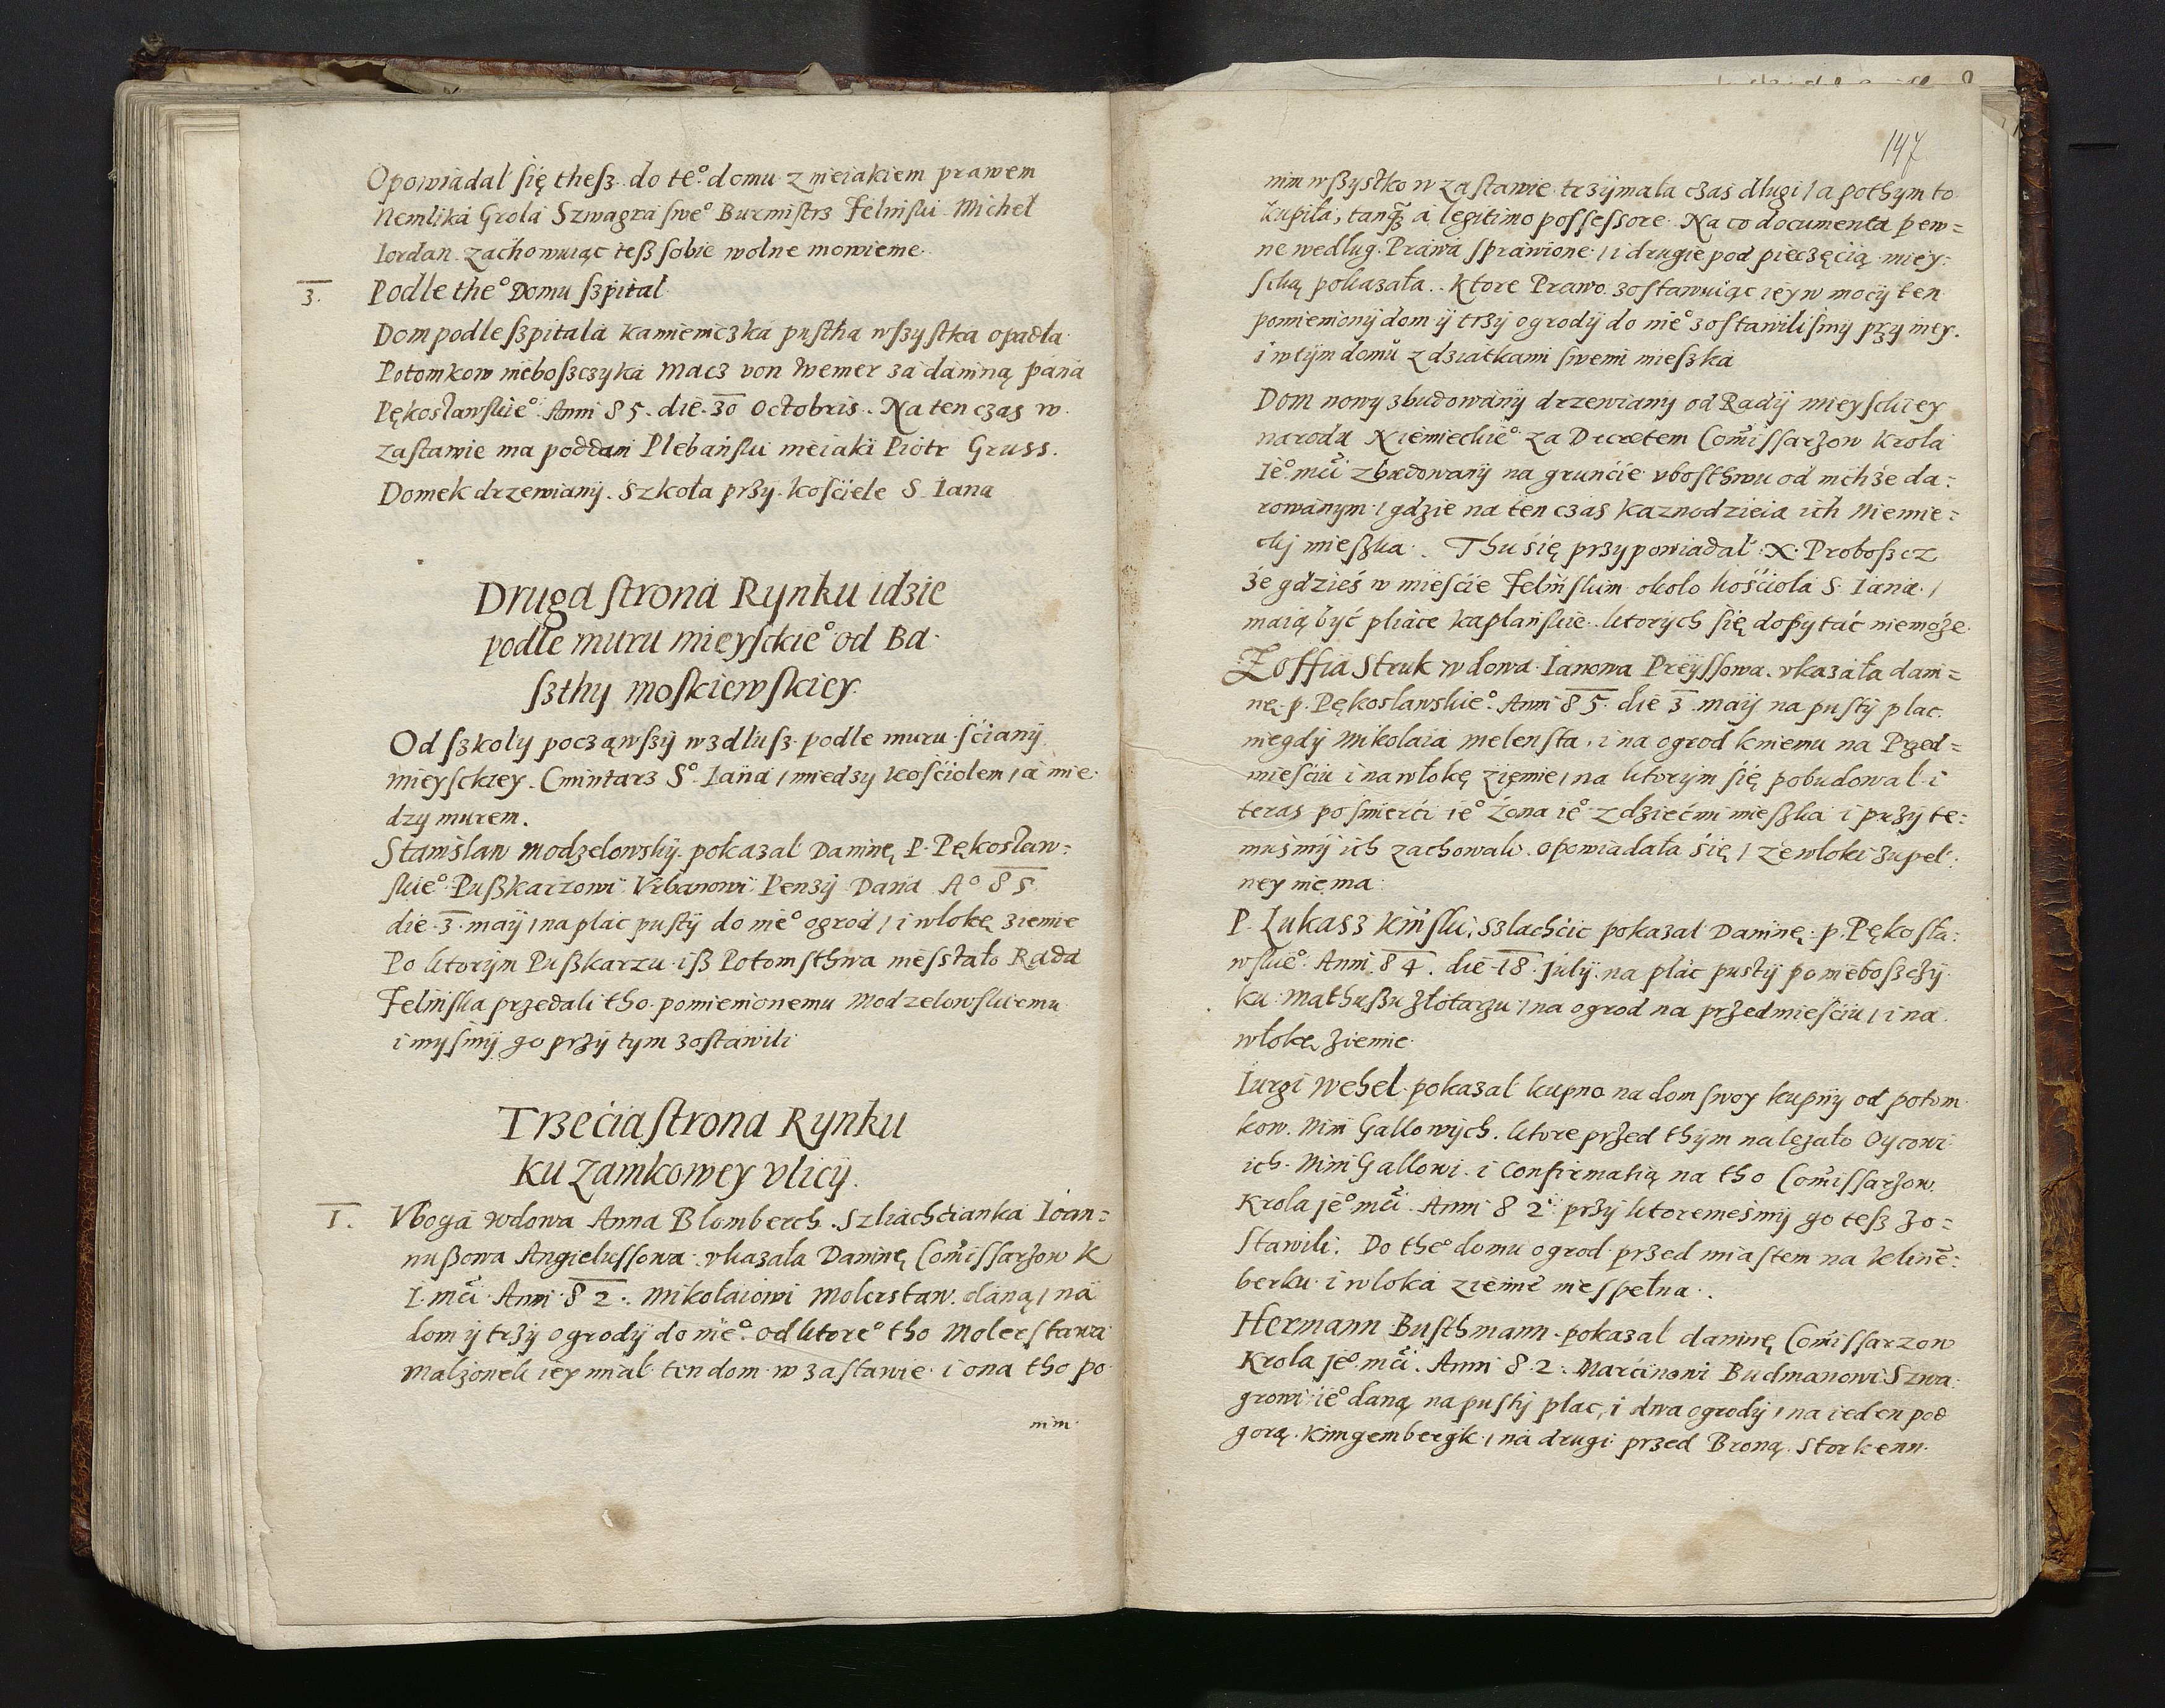 Opowiadał się thesz do te° domu z nieiakiem prawem
Nemlika Grola Szwagra swe° Burmistrz Felinski Michel
Iordan zachowuiąc tesz sobie wolne mowienie.
3. Podle the° Domu szpital
Dom podle szpitala kamieniczka pustha wszystka opadła
Potomkow nieboszczyka Macz von Wemer za daniną pana
Pękosławskie° Anni 85. die 30 Octobris. Na ten czas w
zastawie ma poddani Plebański nieiaki Piotr Gruss.
Domek drzewiany. Szkoła przy kościele S. Iana
Druga strona Rynku idzie
podle muru mieysckie° od Ba-
szthy moskiewskiey.
Od szkoły począwszy wzdłusz podle muru ściany
mieysckiey. Cmintarz S° Iana / miedzy kościolem / a mie
dzy murem.
Stanislaw Modzelowsky pokazał Daninę P. Pękosław=
skie° Puszkarzowi Vrbanowi Penzij Dana A° 85
die 3 maij / na plac pusty do nie° ogrod / i włokę ziemie
Po ktorym Puszkarzu isz Potomsthwa niesstało Rada
Felińska przedali tho pomienionemu Modzelowskiemu
i mysmy go przy tym zostawili
Trzecia strona Rynku
ku zamkowey vlicy.
I. Vboga wdowa Anna Blomberch. Szliachcianka Ioan=
nuszowa Angielussowa vkazala Daninę Comissarzow K
I. mci Anni 82. Mikolaiowi Molerstaw. daną / na
dom y trzy ogrody do nie°. od ktore° tho Molerstawa
Malzonek iey miał ten dom w zastawie i ona tho po
nim
147
nim wszystko w zastawie trzymala czas dlugi / a pothym to
kupiła, tanq̃з a legitimo possessore. Na co documenta pew=
ne wedlug Prawa sprawione / i drugie pod pieczęcią miey=
scką pokazała. Ktore Prawo zostawuiąc iey w mocy ten
pomieniony dom y trzy ogrody do nie° zostawilismy przy niey.
i w tym domu z dziatkami swemi mieszka
Dom nowy zbudowany drzewiany od Rady mieysckiey
narodu Niemieckie° za Decretem Comissarzow Krola
Ie° mci zbudowany na gruncie vbosthwu od nichże da=
rowanym / gdzie na ten czas kaznodzieia ich Niemie=
ckj mieszka. Thu się przypowiadał X. Proboszcz
że gdzieś w mieście Felińskim okolo kościoła S. Iana. /
maią być pliace kaplanskie ktorych się dopytać niemoże.
Zoffia Struk wdowa Ianowa Preyssowa. vkazała dani=
nę p. Pękoslawskie° Anni 85 die 3 maij na pusty plac.
niegdy Mikolaia Melensta, i na ogrod k niemu na Przed=
mieściu i na włokę ziemie / na ktorym się pobudowal i
teras po smierći ie° żona ie° z dziećmi mieszka i przy te=
musmy ich zachowali. opowiadała się / że włoki zupeł
ney nie ma.
P. Lukasz Kinski, szlachcic pokazał Daninę p. Pękosła=
wskie° Anni 84. die 18 July. na plac pusty po nieboszczy
ku Mathuszu złotarzu / na ogrod na przedmieściu / i na
włokę ziemie.
Iurgi Wehel pokazał kupno na dom swoy kupny od potom
kow. Nim Gallowych. ktore przed thym należało Oycowi
ich Nim Gallowi. i Confirmatią na tho Comissarzow
Krola Je° mci Anni 82 przy ktoremesmy go tesz zo=
stawili. Do the° domu ogrod przed miastem na Kline=
berku i włoka ziemie niespełna.
Hermann Busthmann pokazal daninę Comissarzow
Krola Je° mci. Anni 82. Marćinowi Budmanowi Szwa=
growi ie° daną na pusty plac, i dwa ogrody / na ieden pod
gorą Kinngembergk / na drugi przed Broną Storkenn.